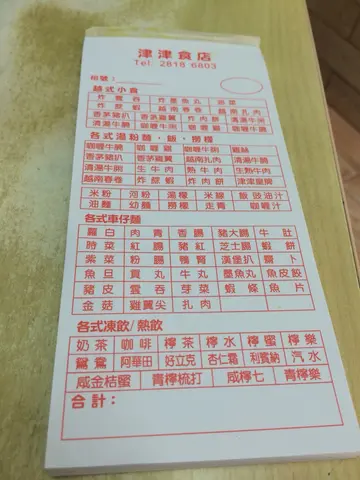 津津食店
Tel. 2818 6803
枱號:
越式小食
炸雲吞 炸墨魚丸 油菜
炸龍蝦 越南春卷 越南扎肉
香茅豬扒 香茅雞翼 炸肉餅 清湯牛腩
清湯牛腩 咖喱牛腩 咖喱雞 咖喱牛腩
各式湯粉麵・飯・撈檬
咖喱牛腩 咖喱雞 咖喱牛腩 雞絲
香茅豬扒 香茅雞翼 越南扎肉 清湯牛腩
清湯牛腩 生牛肉 熟牛肉 生熟牛肉
越南春卷 炸龍蝦 炸肉餅 津津皇牌
米粉 河粉 湯檬 米線 飯 豉油汁
油麵 幼麵 撈檬 走青 咖喱汁
各式車仔麵
蘿白 肉青 香腸 豬大腸 牛肚
時菜 紅腸 豬紅 芝士腸 蝦餅
紫菜 粉腸 鴨腎 漢堡扒 齋卜
魚旦 貢丸 牛丸 墨魚丸 魚皮餃
豬皮 雲吞 芽菜 蝦條 魚片
金菇 雞翼尖 扎肉
各式凍飲/熱飲
奶茶 咖啡 檸茶 檸水 檸蜜 檸樂
鴛鴦 阿華田 好立克 杏仁霜 利賓納 汽水
咸金桔蜜 青檸梳打 咸檸七 青檸樂
合計: